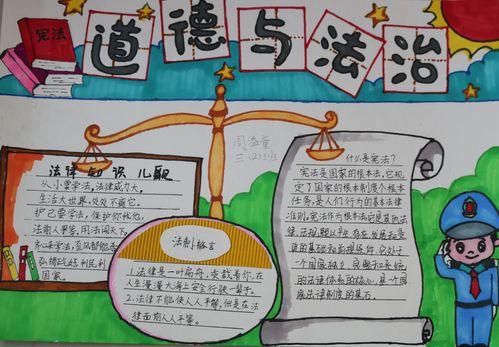 宪法
道德与法治
三(2)班
法律知识儿歌
从小要学法,法律威力大。
生活大世界,处处不离它。
护己要学法,保护你我他,
法前人平等,用法闯天下。
国家。
法制格言
1.法律是一叶扁舟,承载着你,在
人生漫漫大海上安全行驶一辈子。
2.法律不能使人人平等,但是在法
律面前人人平等。
什么是宪法?
宪法是国家的根本法,它规
定了国家的根本制度个根本
任务,是人们行为的基本法律
准则。宪法作为根本法它是其他法
更的基础和前提条件,它处于
一个国家独立、完整和系统
的法律体系的核心,是一个国
家法律制度的基石。